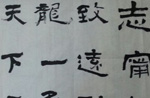 志甯
致遠
龍一
天下